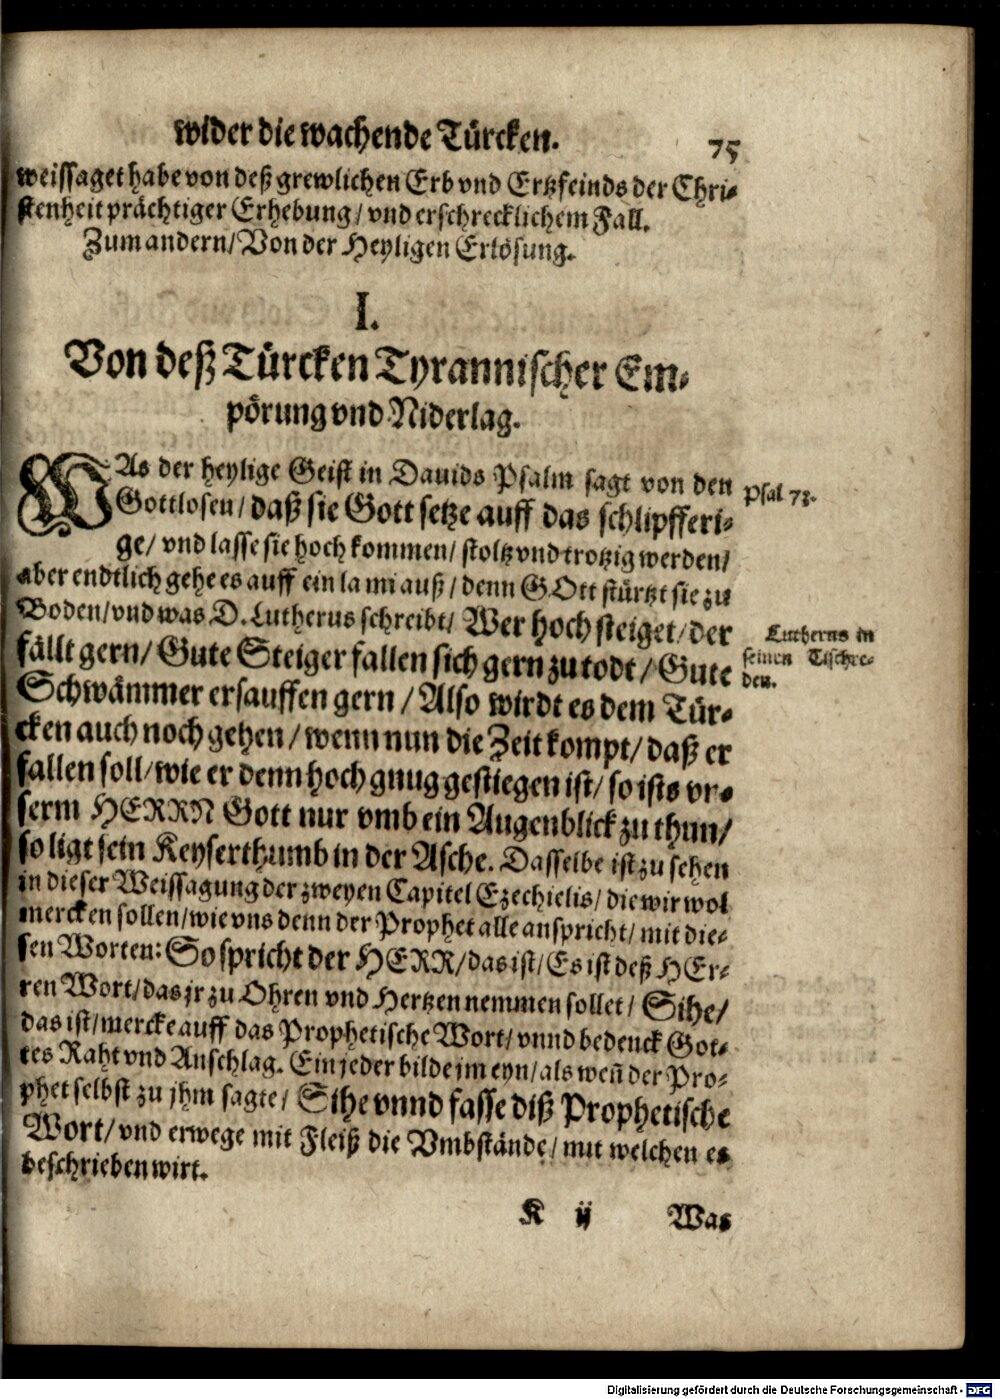 wider die wachende Türcken. 75
weissaget habe von deß grewlichen Erb vnd Ertzfeinds der Chri-
stenheit prächtiger Erhebung/ vnd erschrecklichem Fall.
Zum andern/ Von der Heyligen Erlösung.
I.
Von deß Türcken Tyrannischer Em-
pörung vnd Niderlag.
WAs der heylige Geist in Dauids Psalm sagt von den
Psal 73.
Gottlosen/ daß sie Gott setze auff das schlipfferi-
ge/ vnd lasse sie hoch kommen/ stoltz vnd trotzig werden/
aber endtlich gehe es auff ein la mi auß/ denn GOtt stürtzt sie zu
Boden/ vnd was D. Lutherus schreibt/ Wer hoch steiget/ der
Lutherus in
seinen Tischre-
den.
fällt gern/ Gute Steiger fallen sich gern zu todt/ Gute
Schwämmer ersauffen gern/ Also wirdt es dem Tür-
cken auch noch gehen/ wenn nun die Zeit kompt/ daß er
fallen soll/ wie er denn hoch gnug gestiegen ist/ so ists vn-
serm HERRN Gott nur vmb ein Augenblick zu thun/
so ligt sein Keyserthumb in der Asche. Dasselbe ist zu sehen
in dieser Weissagung der zweyen Capitel Ezechielis/ die wir wol
mercken sollen/ wie vns denn der Prophet alle anspricht/ mit die-
sen Worten: So spricht der HERR/ das ist/ Es ist deß HEr-
ren Wort/ das jr zu Ohren vnd Hertzen nemmen sollet/ Sihe/
das ist/ mercke auff das Prophetische Wort/ vnnd bedenck Got-
tes Raht vnd Anschlag. Ein jeder bilde jm eyn/ als weñ der Pro-
phet selbst zu jhm sagte/ Sihe vnnd fasse diß Prophetische
Wort/ vnd erwege mit Fleiß die Vmbstände/ mit welchen es
beschrieben wirt.
K ij Was
Digitalisierung gefördert durch die Deutsche Forschungsgemeinschaft - DFG